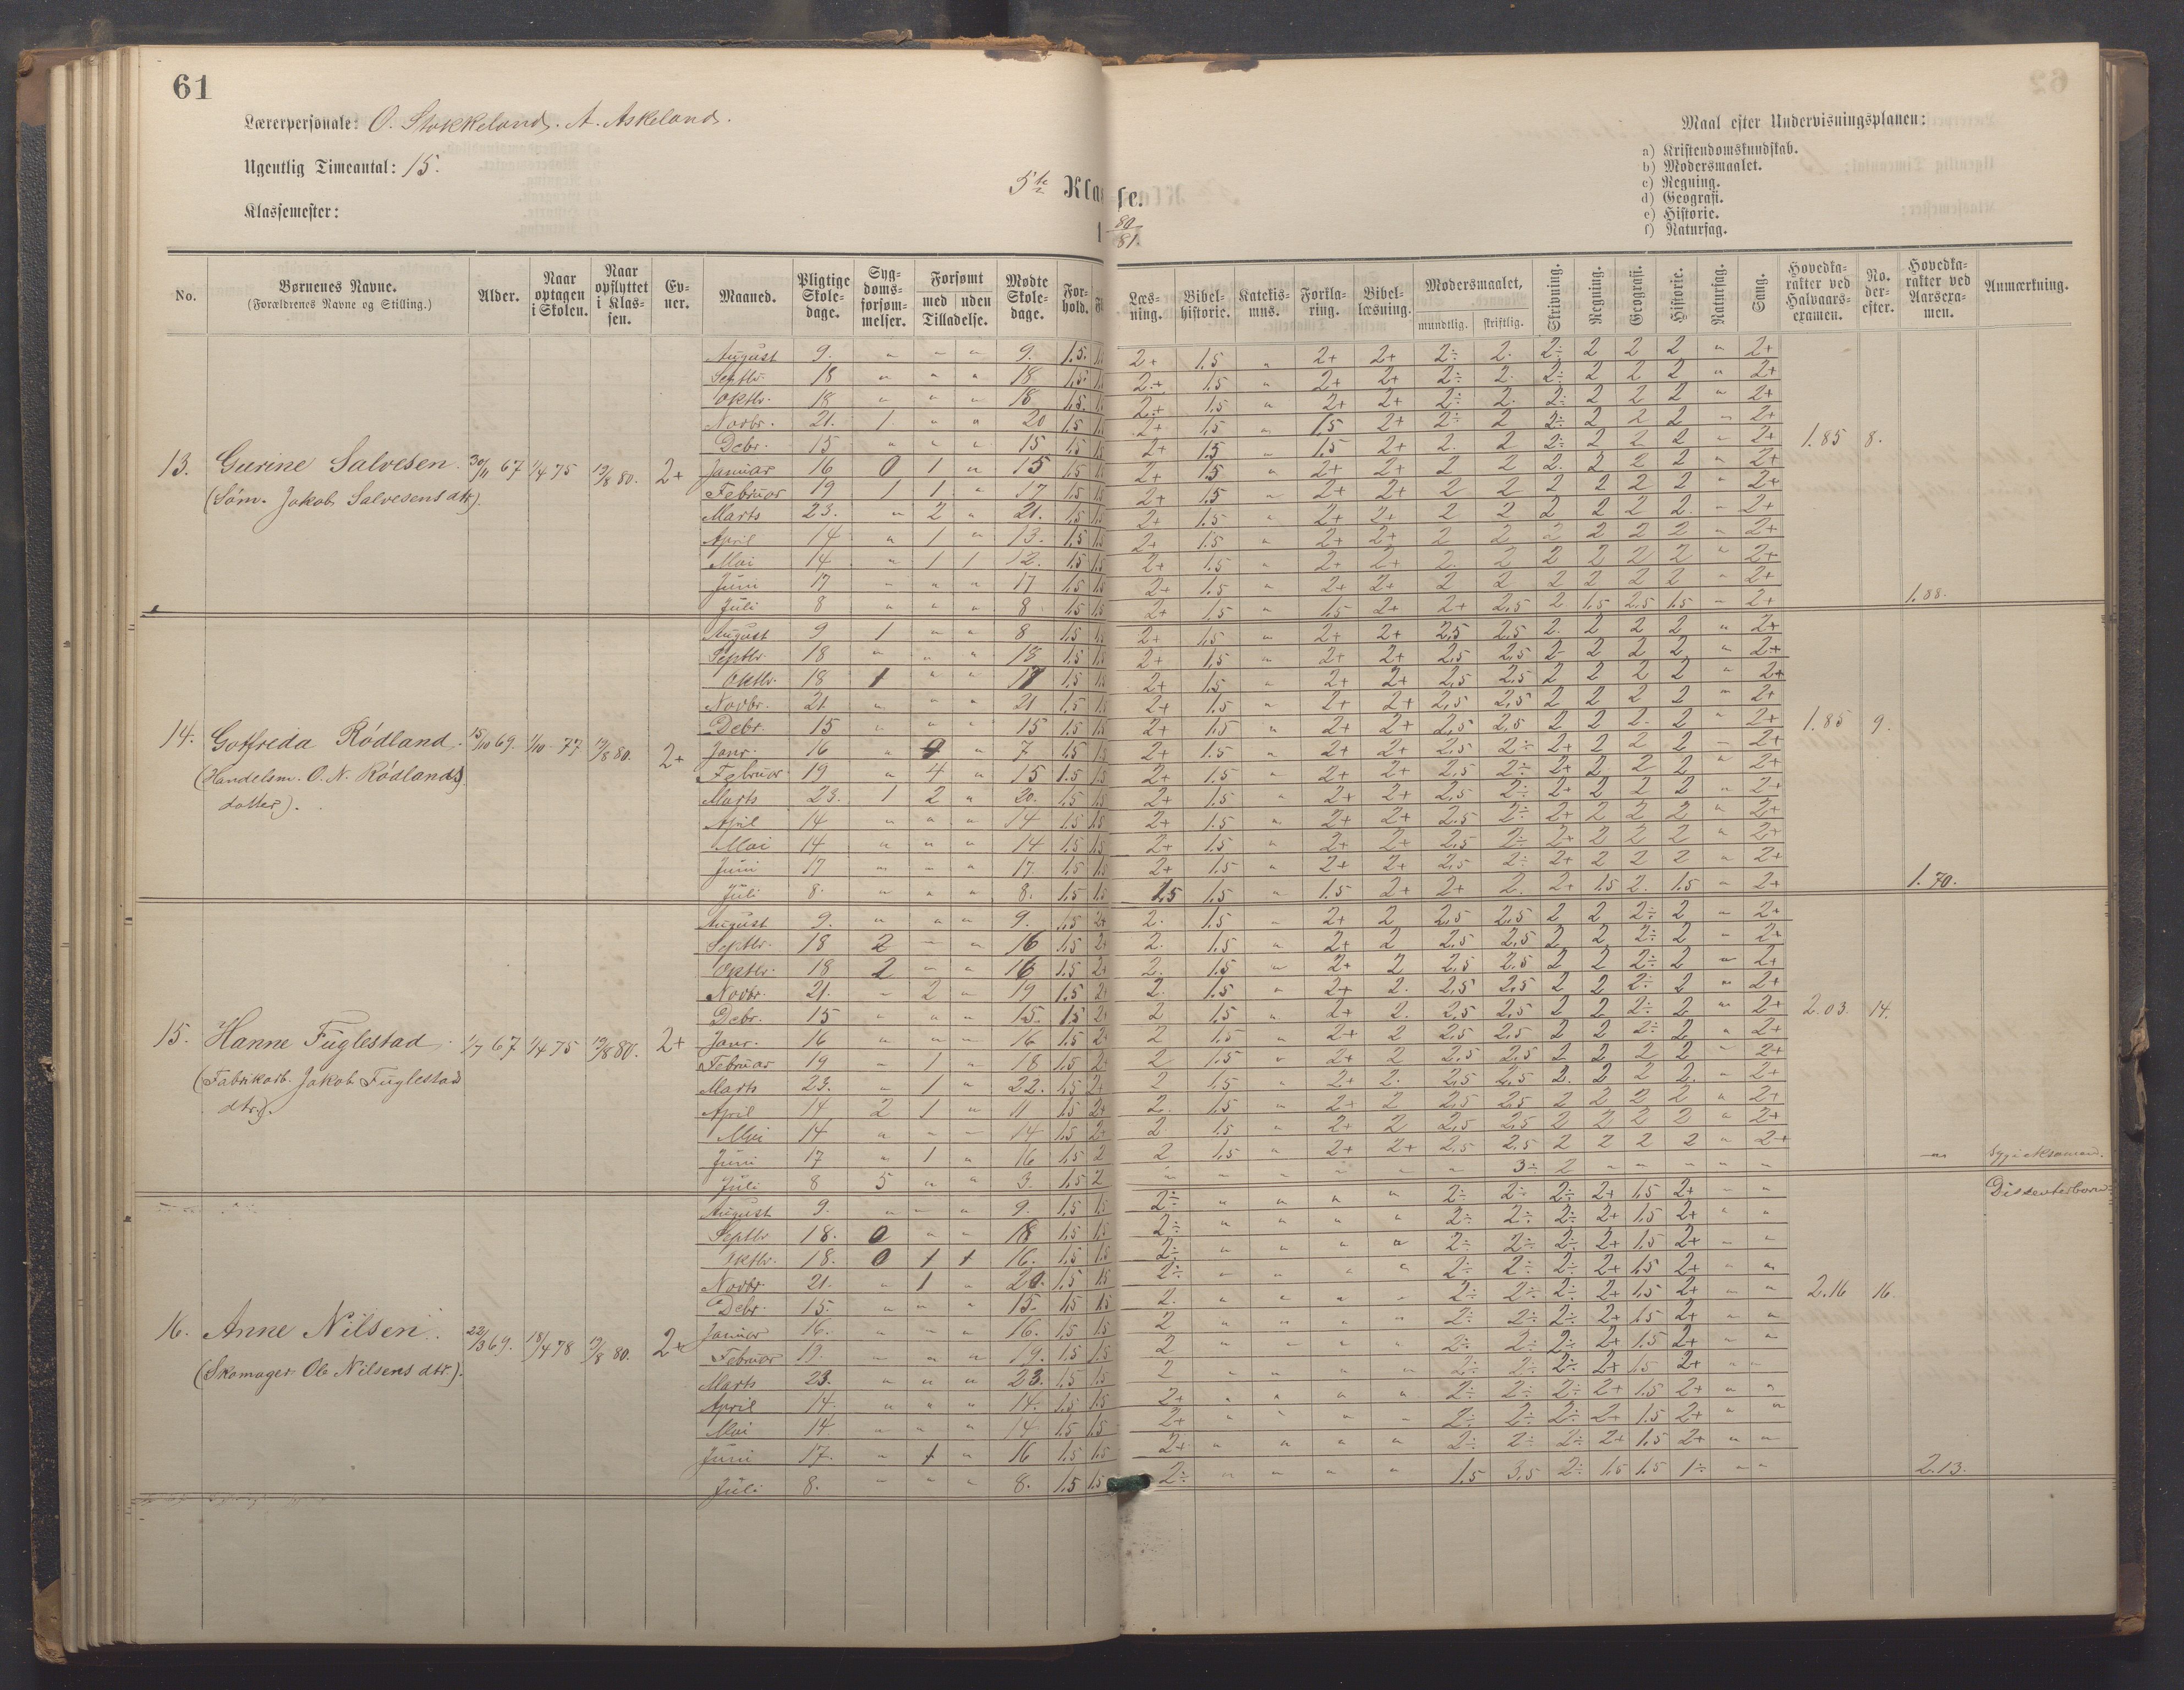 61
Lærerpersonale: O. Stokkeland. A. Askeland.
Ugentlig Timeantal: 15.
Klassemester:
5te Klasse.
1 80/81.
Maal efter Undervisningsplanen:
a) Kristendomskundskab.
b) Modersmaalet.
c) Regning.
d) Geografi.
e) Historie.
f) Naturfag.
No. | Børnenes Navne. (Forældrenes Navne og Stilling.) | Alder. | Naar optagen i Skolen. | Naar opflyttet i Klassen. | Evner. | Maaned. | Pligtige Skoledage. | Sygdomsforsømmelser. | Forsømt med Tilladelse. | uden Tilladelse. | Mødte Skoledage. | Forhold. | Fl | Læsning. | Bibelhistorie. | Katekismus. | Forklaring. | Bibellæsning. | Modersmaalet, mundtlig. | skriftlig. | Skrivning. | Regning. | Geografi. | Historie. | Naturfag. | Sang. | Hovedkarakter ved Halvaarsexamen. | No. derefter. | Hovedkarakter ved Aarsexamen. | Anmærkning.
13. Gurine Salvesen. 30/11 67 1/4 75 12/8 80. 2+
(Søm. Jakob Salvesens dtr).
August 9. " " " 9. 1.5. 1.5 2+ 1.5 " 2+ 2+ 2÷ 2. 2÷ 2 2 2 " 2+
Septbr. 18 " " " 18 1.5. 1.5 2+ 1.5 " 2+ 2+ 2÷ 2. 2÷ 2 2 2 " 2+
Oktbr. 18 " " " 18 1.5. 1.5 2+ 1.5 " 2+ 2+ 2÷ 2. 2÷ 2 2 2 " 2+
Novbr. 21. 1 " " 20 1.5 1.5 2+ 1.5 " 1.5 2+ 2÷ 2 2÷ 2 2 2 " 2+
Debr. 15 " " " 15 1.5 1.5 2+ 1.5 " 1.5 2+ 2. 2 2÷ 2 2 2 " 2+ 1.85 8.
Januar 16 0 1 " 15 1.5 1.5 2+ 1.5 " 2+ 2+ 2 2 2. 2 2 2 " 2+
Februar 19 1 1 " 17 1.5 1.5 2+ 1.5 " 2+ 2+ 2 2 2 2 2 2 " 2+
Marts 23. " 2 " 21. 1.5 1.5 2+ 1.5 " 2+ 2+ 2 2 2 2 2 2. " 2+
April 14 " 1 " 13. 1.5 1.5 2+ 1.5 " 2+ 2+ 2 2 2 2 2 2 " 2+
Mai 14 " 1 1 12. 1.5 1.5 2+ 1.5 " 2+ 2+ 2. 2 2 2 2 2 " 2+
Juni 17 " " " 17 1.5 1.5 2+ 1.5 " 2+ 2+ 2 2 2 2 2 2 " 2+
Juli 8 " " " 8 1.5 1.5 2+ 1.5 " 1.5 2+ 2+ 2.5 2 1.5 2.5 1.5 " 2+ 1.88.
14. Gotfreda Rødland. 15/10 69. 1/10 77 12/8 80. 2+
(Handelsm. O. N. Rødlands
datter).
August 9 1 " " 8 1.5 1.5 2+ 1.5 " 2+ 2+ 2.5 2.5 2. 2 2 2 " 2+
Septbr. 18 " " " 18 1.5 1.5 2+ 1.5 " 2+ 2+ 2.5 2.5 2 2 2 2 " 2+
Oktbr. 18 1 " " 17 1.5 1.5 2+ 1.5 " 2+ 2+ 2.5 2.5 2 2 2 2 " 2+
Novbr. 21 " " " 21 1.5 1.5 2+ 1.5 " 2+ 2+ 2.5 2.5 2 2 2 2 " 2+
Debr. 15 " " " 15 1.5 1.5 2+ 1.5 " 2+ 2+ 2.5 2.5 2 2 2. 2 " 2+ 1.85 9.
Janr. 16 " 9 " 7 1.5 1.5 2+ 1.5 " 2+ 2+ 2.5 2÷ 2+ 2 2 2 " 2+
Februar. 19 " 4 " 15 1.5 1.5 2+ 1.5 " 2+ 2+ 2.5 2÷ 2+ 2 2 2 " 2+
Marts 23. 1 2 " 20. 1.5 1.5 2+ 1.5 " 2+ 2+ 2.5 2÷ 2+ 2 2 2 " 2+
April 14 " " " 14 1.5 1.5 2+ 1.5 " 2+ 2+ 2.5 2÷ 2+ 2 2 2 " 2+
Mai 14 " " " 14 1.5 1.5 2+ 1.5 " 2+ 2+ 2.5 2÷ 2+ 2 2 2 " 2+
Juni 17 " " " 17. 1.5 1.5 2+ 1.5 " 2+ 2+ 2.5 2÷ 2+ 2 2 2 " 2+
Juli 8. " " " 8. 1.5 1.5 1.5 1.5 " 1.5 2+ 2+ 2. 2+ 1.5 2. 1.5 " 2+ 1.70.
15. Hanne Fuglestad. 1/7 67 1/4 75 12/8 80. 2+
(Fabrikarb. Jakob Fuglestad
dtr).
August 9. " " " 9. 1.5 2+ 2. 1.5 " 2+ 2 2.5 2.5 2 2 2÷ 2 " 2+
Septbr. 18 2 " " 16 1.5 2+ 2. 1.5 " 2+ 2 2.5 2.5 2 2 2÷ 2 " 2+
Oktbr. 18 2 " " 16 1.5 2+ 2. 1.5 " 2+ 2 2.5 2.5 2 2 2÷ 2 " 2+
Novbr. 21. " 2 " 19 1.5 2+ 2. 1.5 " 2+ 2. 2.5 2.5 2 2 2÷ 2 " 2+
Debr. 15 " " " 15. 1.5 2+ 2 1.5 " 2+ 2. 2.5 2.5 2 2 2÷ 2 " 2+ 2.03. 14.
Janr. 16 " " " 16 1.5 2+ 2 1.5 " 2+ 2 2.5 2.5 2 2 2÷ 2 " 2+
Februar 19 " 1 " 18 1.5 2+ 2 1.5 " 2+ 2 2.5 2.5 2 2 2 2 " 2+
Marts 23. " 1 " 22. 1.5 2+ 2 1.5 " 2+ 2. 2.5 2.5 2. 2 2 2. " 2+
April 14 2 1 " 11 1.5 2+ 2. 1.5 " 2+ 2 2.5 2.5 2 2 2 2 " 2+
Mai 14 " " " 14 1.5 2+ 2 1.5 " 2+ 2 2.5 2.5 2 2 2 2 " 2+
Juni 17 " 1 " 16 1.5 2 2 1.5 " 2+ 2+ 2.5 2.5 2 2 2 2 " 2+
Juli 8 5 " " 3. 1.5 2 " " " " " " 3÷ 2 " " " " " " Syg i Aksamen.
16. Anne Nilsen. 22/3 69. 18/4 78 12/8 80. 2+
(Skomager Ole Nilsens dtr.).
August 9. " " " 9. 1.5 1.5 2÷ " " " " 2÷ 2÷ 2÷ 2+ 1.5 2+ " " Dissenterbarn
Septbr 18. 0 " " 18 1.5 1.5 2÷ " " " " 2÷ 2÷ 2÷ 2+ 1.5 2+ " "
Oktbr. 18. 0 1 1 16. 1.5 1.5 2÷ " " " " 2÷ 2÷ 2÷ 2+ 1.5 2+ " "
Novbr. 21. " 1 " 20. 1.5 1.5 2÷ " " " " 2÷ 2÷ 2÷ 2+ 1.5 2+ " "
Debr. 15. " " " 15. 1.5 1.5 2. " " " " 2÷ 2÷ 2÷ 2+ 1.5 2+ " " 2.16 16.
Januar 16. " " " 16. 1.5 1.5 2 " " " " 2÷ 2÷ 2÷ 2+ 1.5 2+ " "
Februar 19. " " " 19. 1.5 1.5 2 " " " " 2÷ 2÷ 2÷ 2+ 1.5 2+ " "
Marts 23. " " " 23. 1.5 1.5 2 " " " " 2÷ 2÷ 2÷ 2+ 1.5 2+ " "
April 14. " " " 14. 1.5 1.5 2+ " " " " 2÷ 2÷ 2÷ 2+ 1.5 2+ " "
Mai 14. " " " 14 1.5 1.5 2+ " " " " 2÷ 2÷ 2÷ 2+ 1.5 2+ " "
Juni 17. " 1 " 16 1.5 1.5 2+ " " " " 2÷ 2÷ 2÷ 2+ 1.5 2+ " "
Juli 8. " " " 8. 1.5 1.5 2÷ " " " " 1.5 3.5 2÷ 1.5 1.5 1÷ " " 2.13.